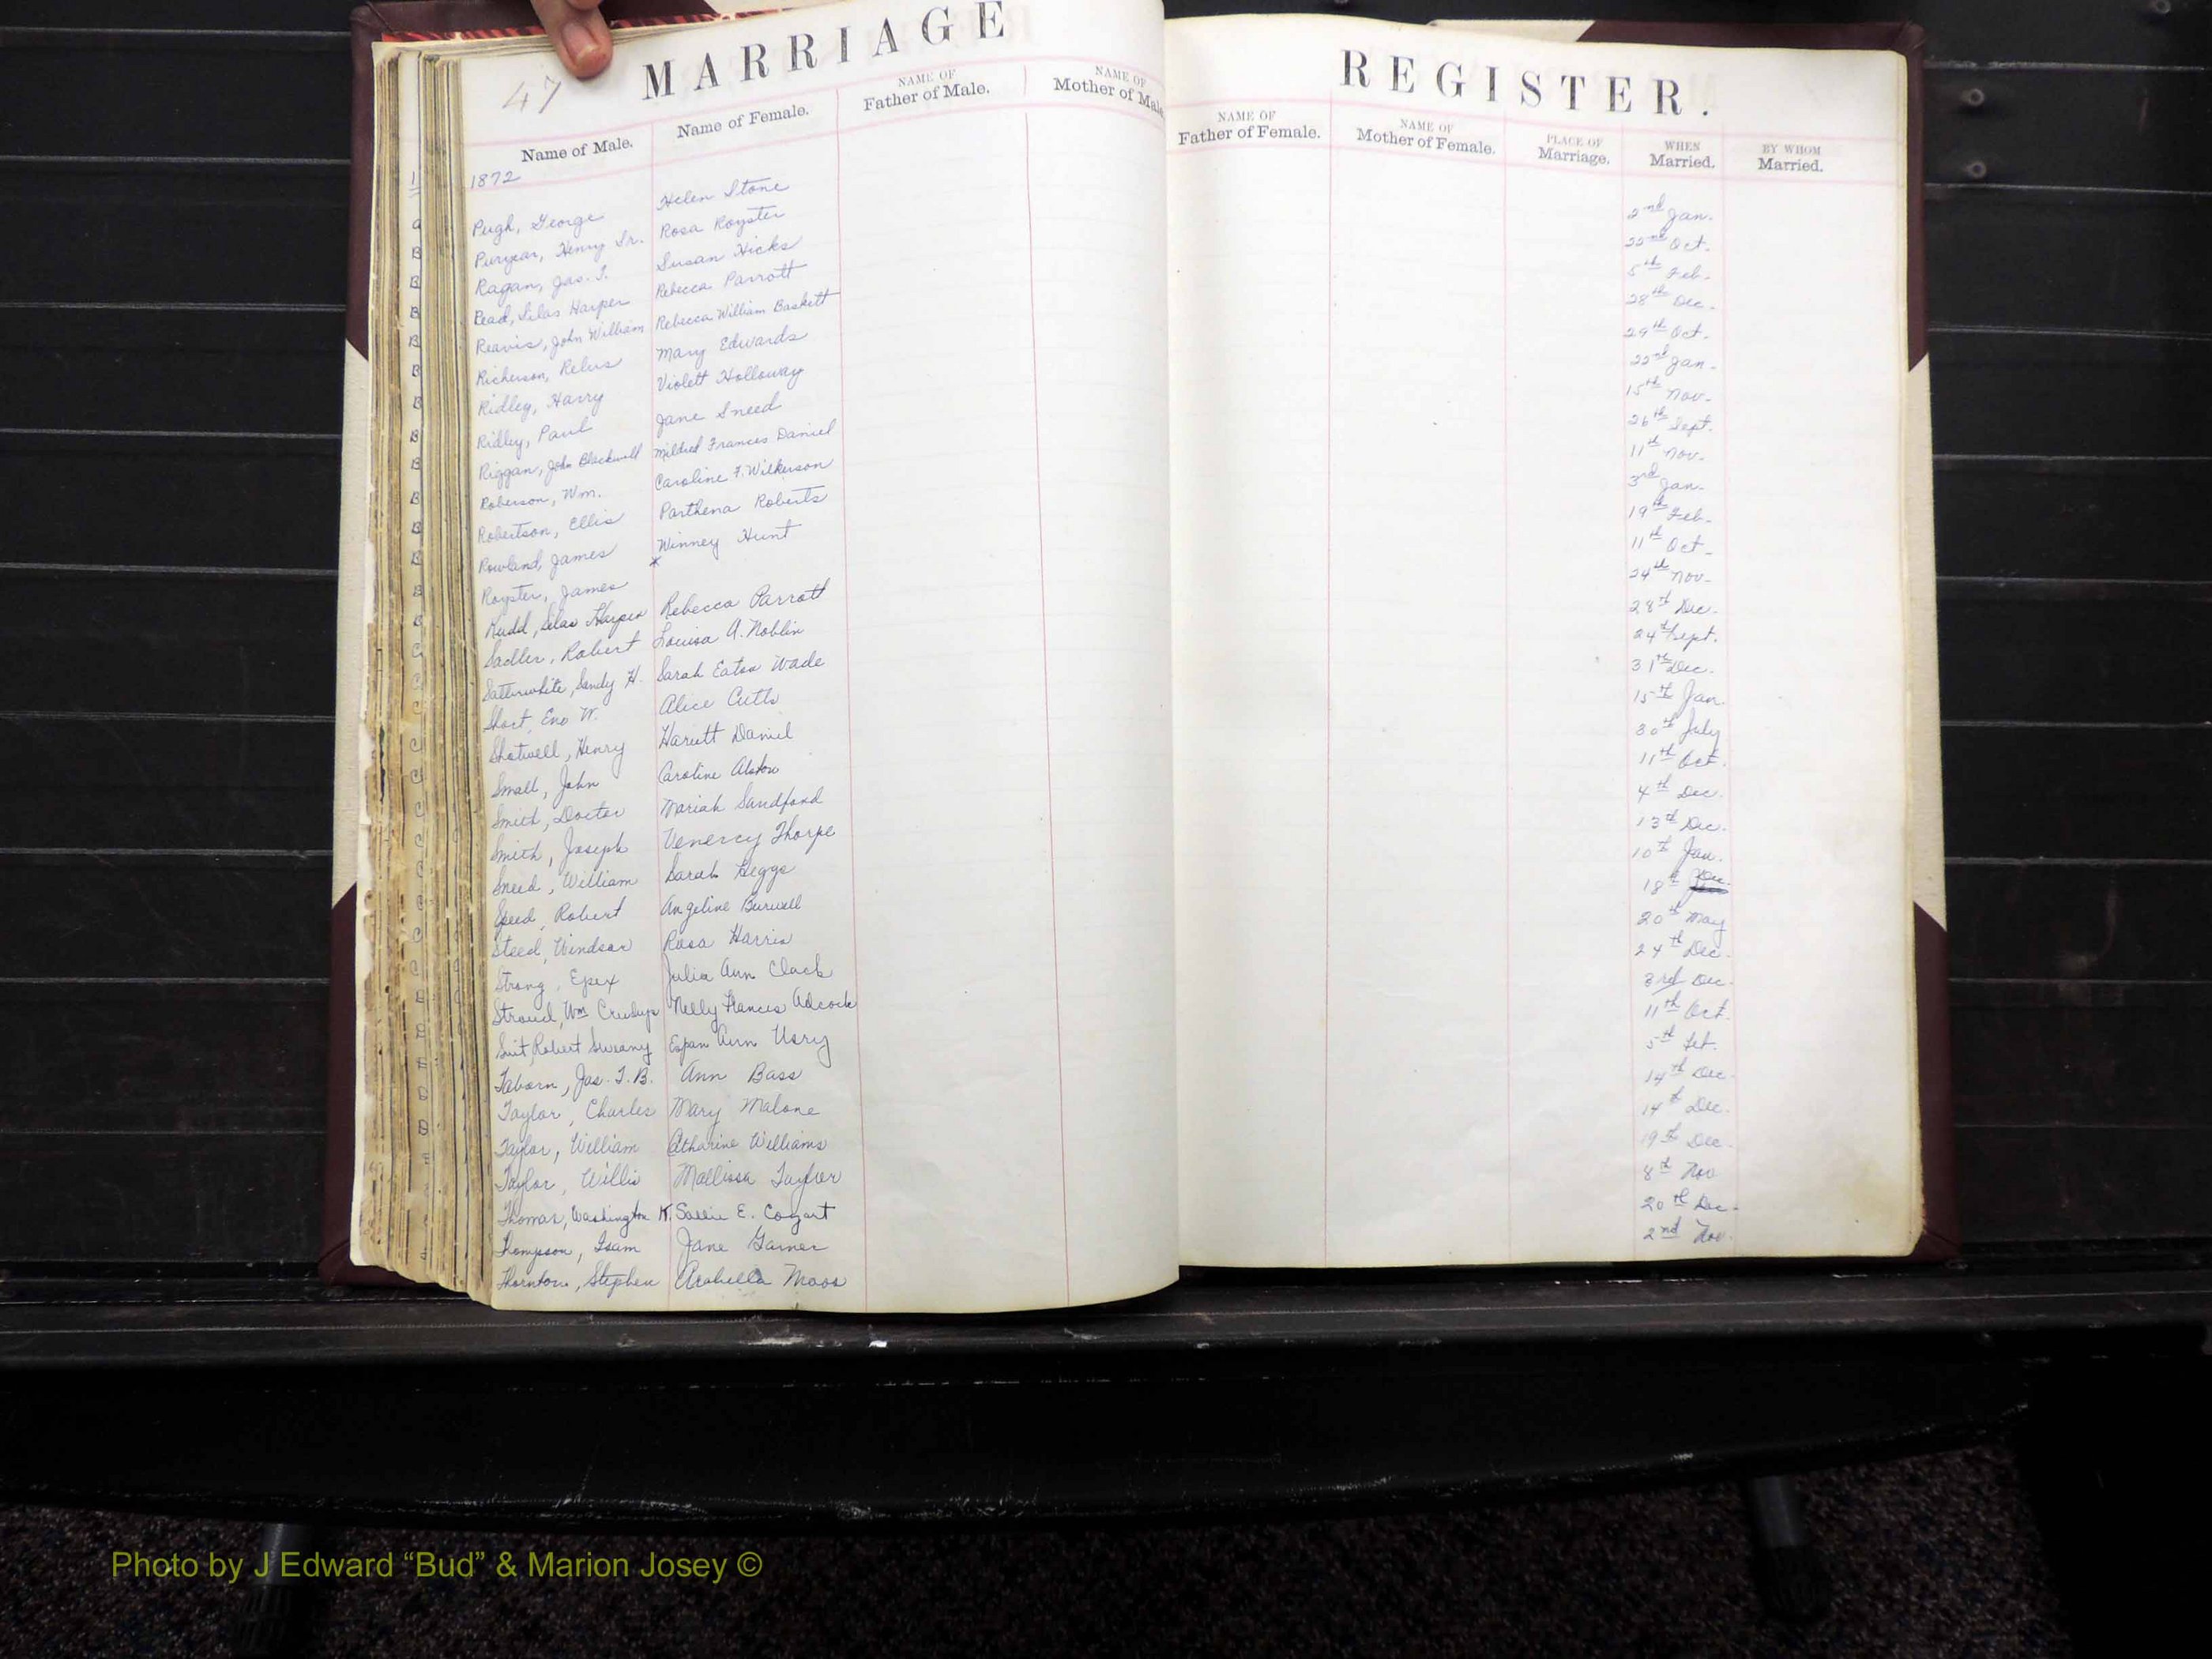 47 MARRIAGE REGISTER.
Name of Male. Name of Female. NAME OF Father of Male. NAME OF Mother of Male NAME OF Father of Female. NAME OF Mother of Female. PLACE OF Marriage. WHEN Married. BY WHOM Married.
1872
Pugh, George Helen Stone 2nd Jan.
Puryear, Henry Sr. Rosa Royster 22nd Oct.
Ragan, Jas. T. Susan Hicks 5th Feb.
Read, Silas Harper Rebecca Parrott 28th Dec.
Reavis, John William Rebecca William Baskett 29th Oct.
Richerson, Relus Mary Edwards 22nd Jan.
Ridley, Harry Violett Holloway 15th Nov.
Ridley, Paul Jane Sneed 26th Sept.
Riggan, John Blackwell Mildred Frances Daniel 11th Nov.
Roberson, Wm. Caroline F. Wilkerson 3rd Jan.
Robertson, Ellis Parthena Roberts 19th Feb.
Rowland, James Winney Hunt 11th Oct.
Royster, James * 24th Nov.
Rudd, Silas Harper Rebecca Parrott 28th Dec.
Sadler, Robert Louisa A. Noblin 24th Sept.
Satterwhite, Sandy H. Sarah Eaton Wade 31th Dec.
Short, Eno W. Alice Cutts 15th Jan.
Shotwell, Henry Hariett Daniel 30th July
Small, John Caroline Alston 11th Oct.
Smith, Doctor Mariah Sandford 4th Dec.
Smith, Joseph Venercy Thorpe 13th Dec.
Sneed, William Sarah Heggs 10th Jan.
Speed, Robert Angeline Burwell 18th Dec.
Steed, Windsor Rosa Harris 20th May
Strong, Epex Julia Ann Clack 24th Dec.
Stroud, Wm Nelly Frances Adcock 3rd Dec.
Suit, Robert Sweany Ann Usry 11th Oct.
Taborn, Jas. T. B. Ann Bass 5th
Taylor, Charles Mary Malone 14th Dec.
Taylor, William Catharine Williams 14th Dec.
Taylor, Willis Mallissa Taylor 19th Dec.
Thomas, Washington K. Sallie E. Cozart 8th Nov
Thompson, Isam Jane Garner 20th Dec.
Thornton, Stephen Arabella Moss 2nd Nov.
Photo by J Edward “Bud” & Marion Josey ©